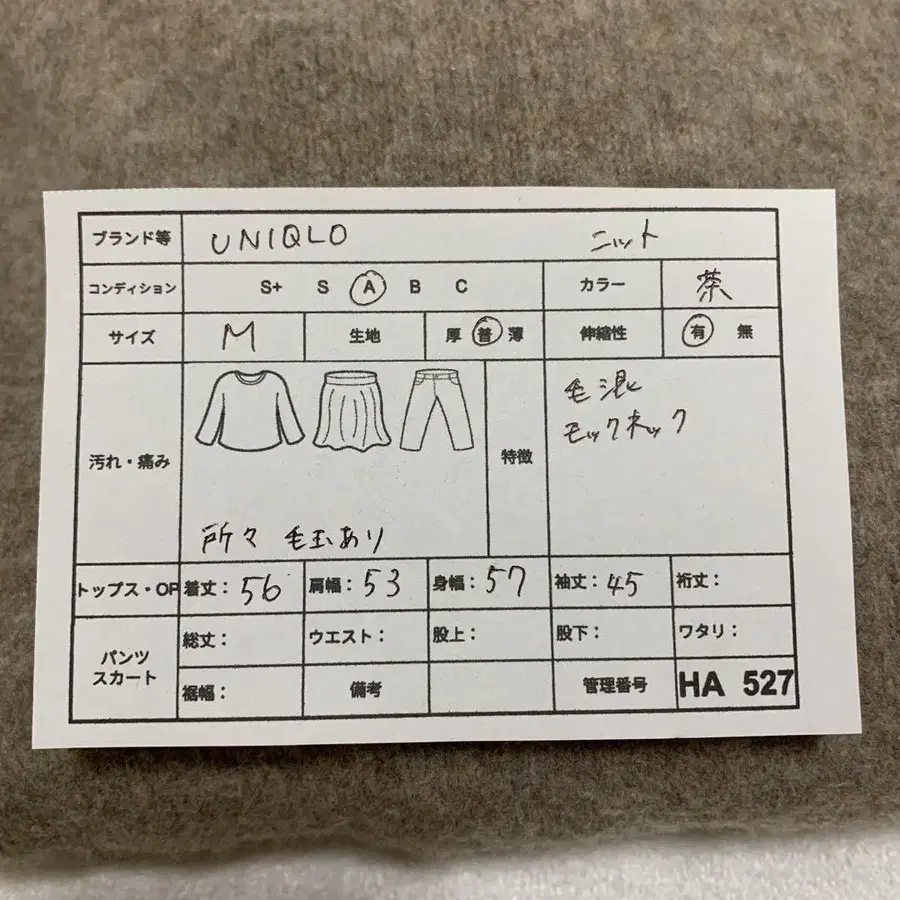 ブランド等 UNIQLO ニット
コンディション S+ S A B C カラー 茶
サイズ M 生地 厚 普 薄 伸縮性 有 無
汚れ・痛み 所々 毛玉あり
特徴 毛混
モックネック
トップス・OP 着丈: 56 肩幅: 53 身幅: 57 袖丈: 45 裄丈:
パンツ
スカート
総丈: ウエスト: 股上: 股下: ワタリ:
裾幅: 備考 管理番号 HA 527